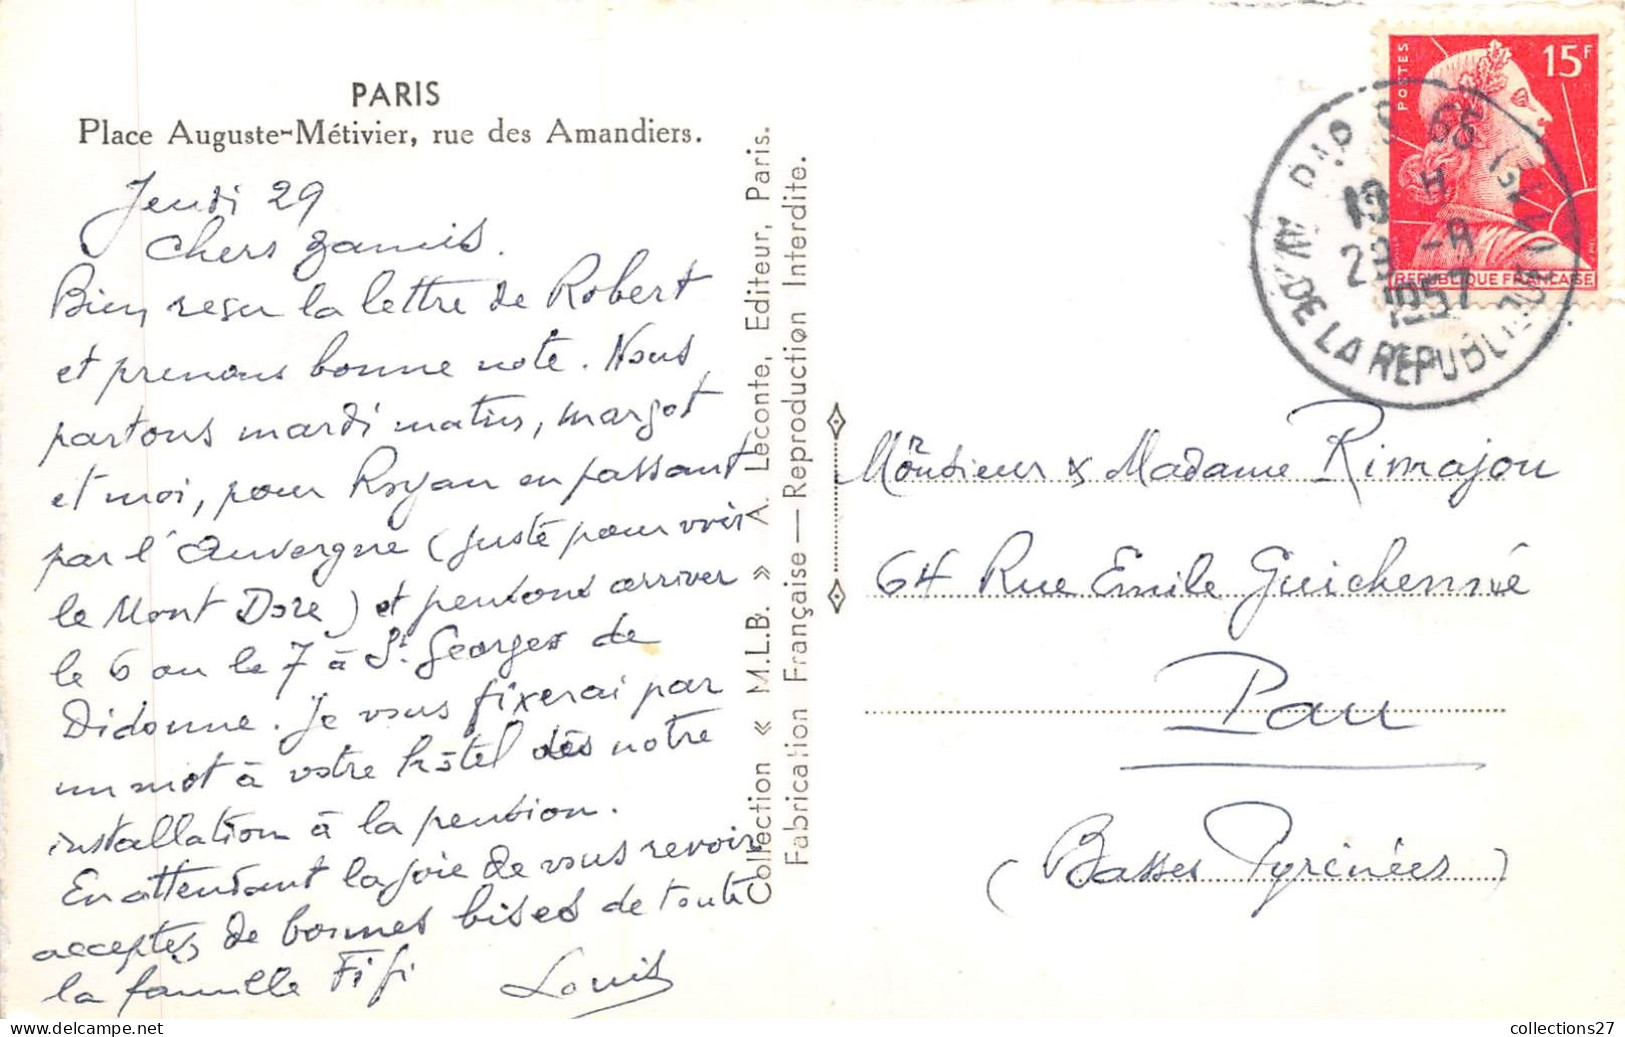 PARIS
Place Auguste-Métivier, rue des Amandiers.
Jeudi 29
Chers zamis.
Bien reçu la lettre de Robert
et prenons bonne note. Nous
partons mardi matin, margot
et moi, pour Royan en passant
par l'Auvergne (juste pour voir
le Mont Dore) et pensons arriver
le 6 ou le 7 à St. Georges de
Didonne. Je vous fixerai par
un mot à votre hôtel dès notre
installation à la pension.
En attendant la joie de vous revoir
acceptez de bonnes bises de toute
la famille Fifi
Louis
Collection « M.L.B. » A. Leconte, Editeur, Paris.
Fabrication Française — Reproduction Interdite.
POSTES
15F
REPUBLIQUE FRANÇAISE
PARIS
19 H
29 -8
1957
AV. DE LA REPUBLIQUE
Monsieur & Madame Rimajou
64 Rue Emile Guichenné
Pau
(Basses Pyrénées)
collections27